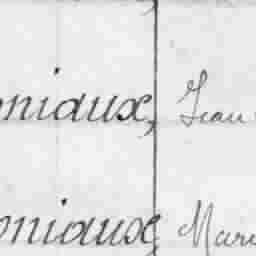 oniaux, Jean
oniaux, Mari